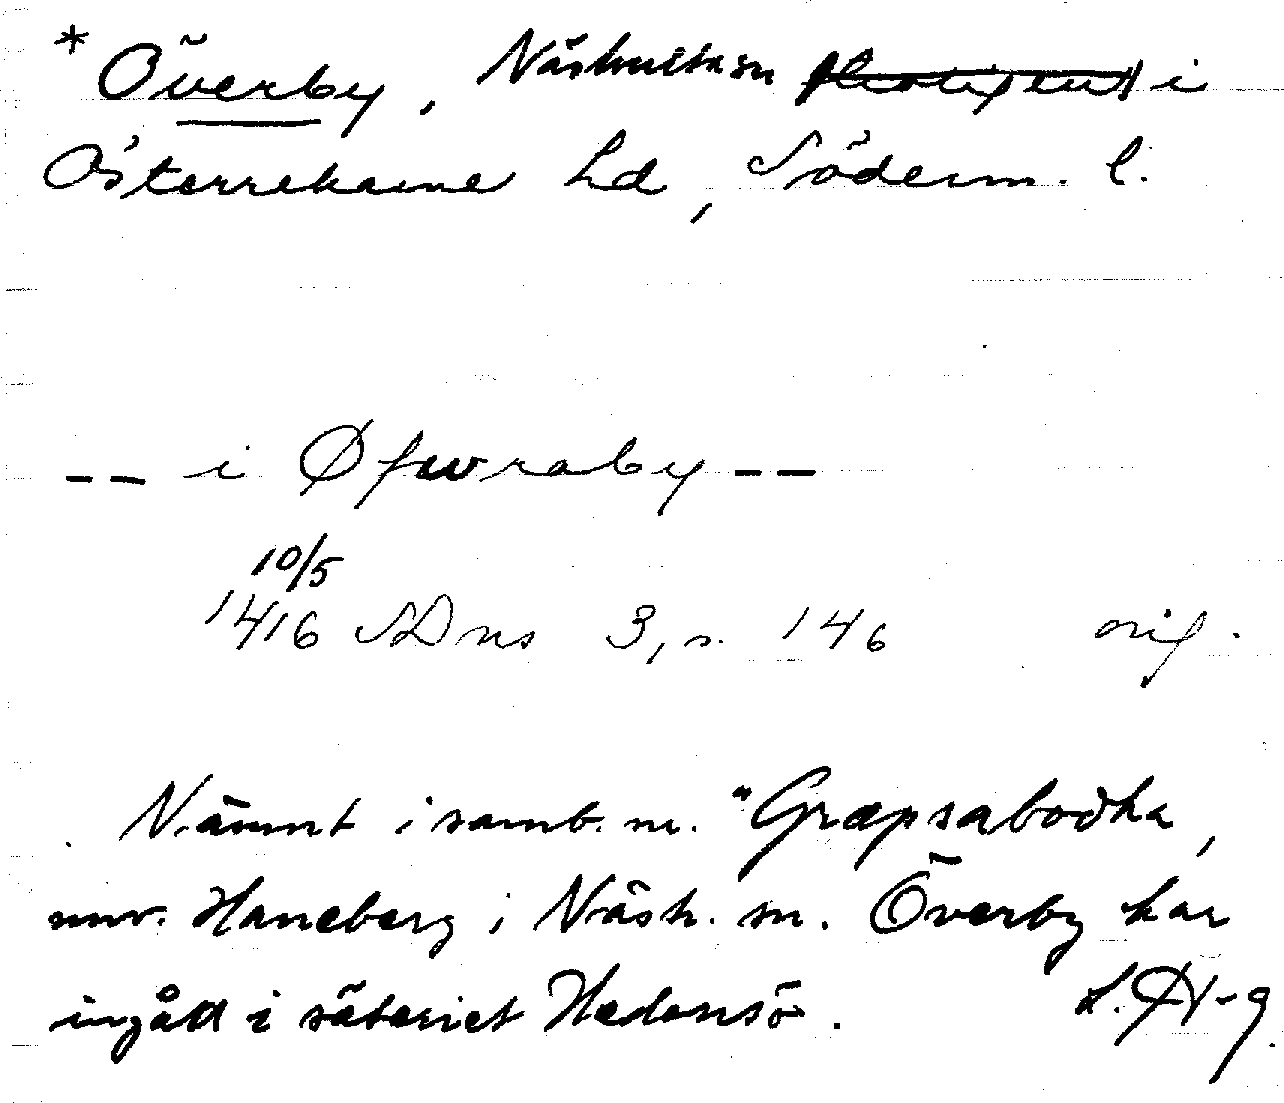 * Överby, Näshulta sn i
Österrekarne hd, Söderm. l.
-- i Øfwraby --
10/5
1416 SDns 3, s. 146 orig.
Nämnt i samb. m. "Græpsabodha,
nuv. Haneberg i Näsh. sn. Överby har
ingått i säteriet Hedensö.